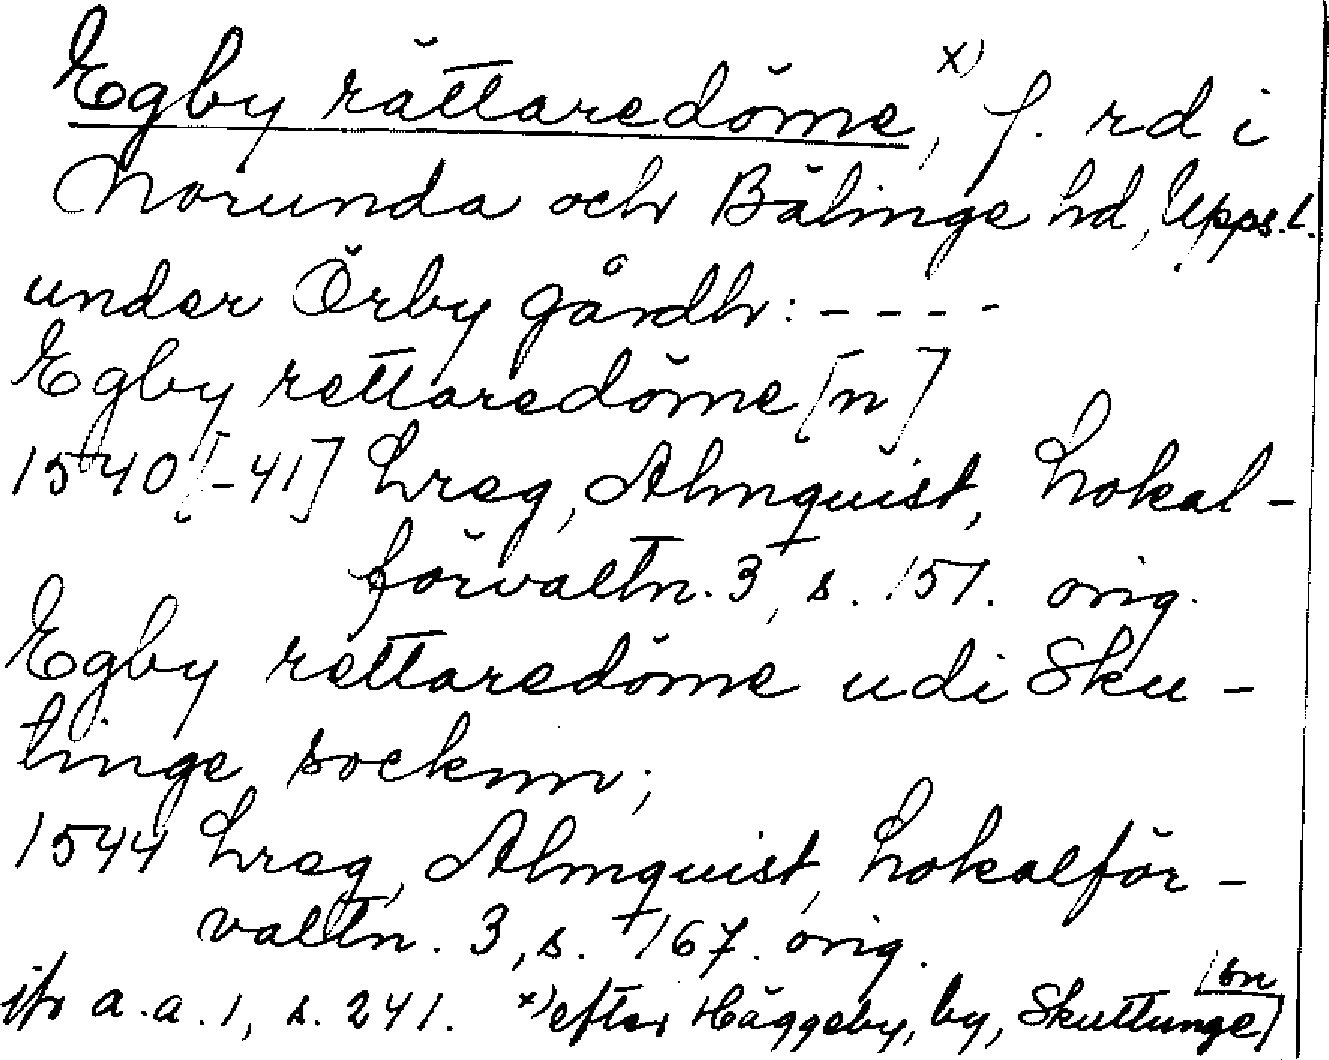 Egby rättaredöme,x) f. rd i
Norunda och Bälinge hd, Upps.l.
under Örby gårdh: - - - -
Egby rettaredöme[n]
1540[-41] Lreg, Almquist, Lokal-
förvaltn. 3, s. 157. orig.
Egby rettaredöme udi Sku-
tinge socknn;
1544 Lreg, Almquist, Lokalför-
valtn. 3, s. 167. orig.
jfr a.a. 1, s. 241. x) efter Häggeby, by, Skuttunge sn